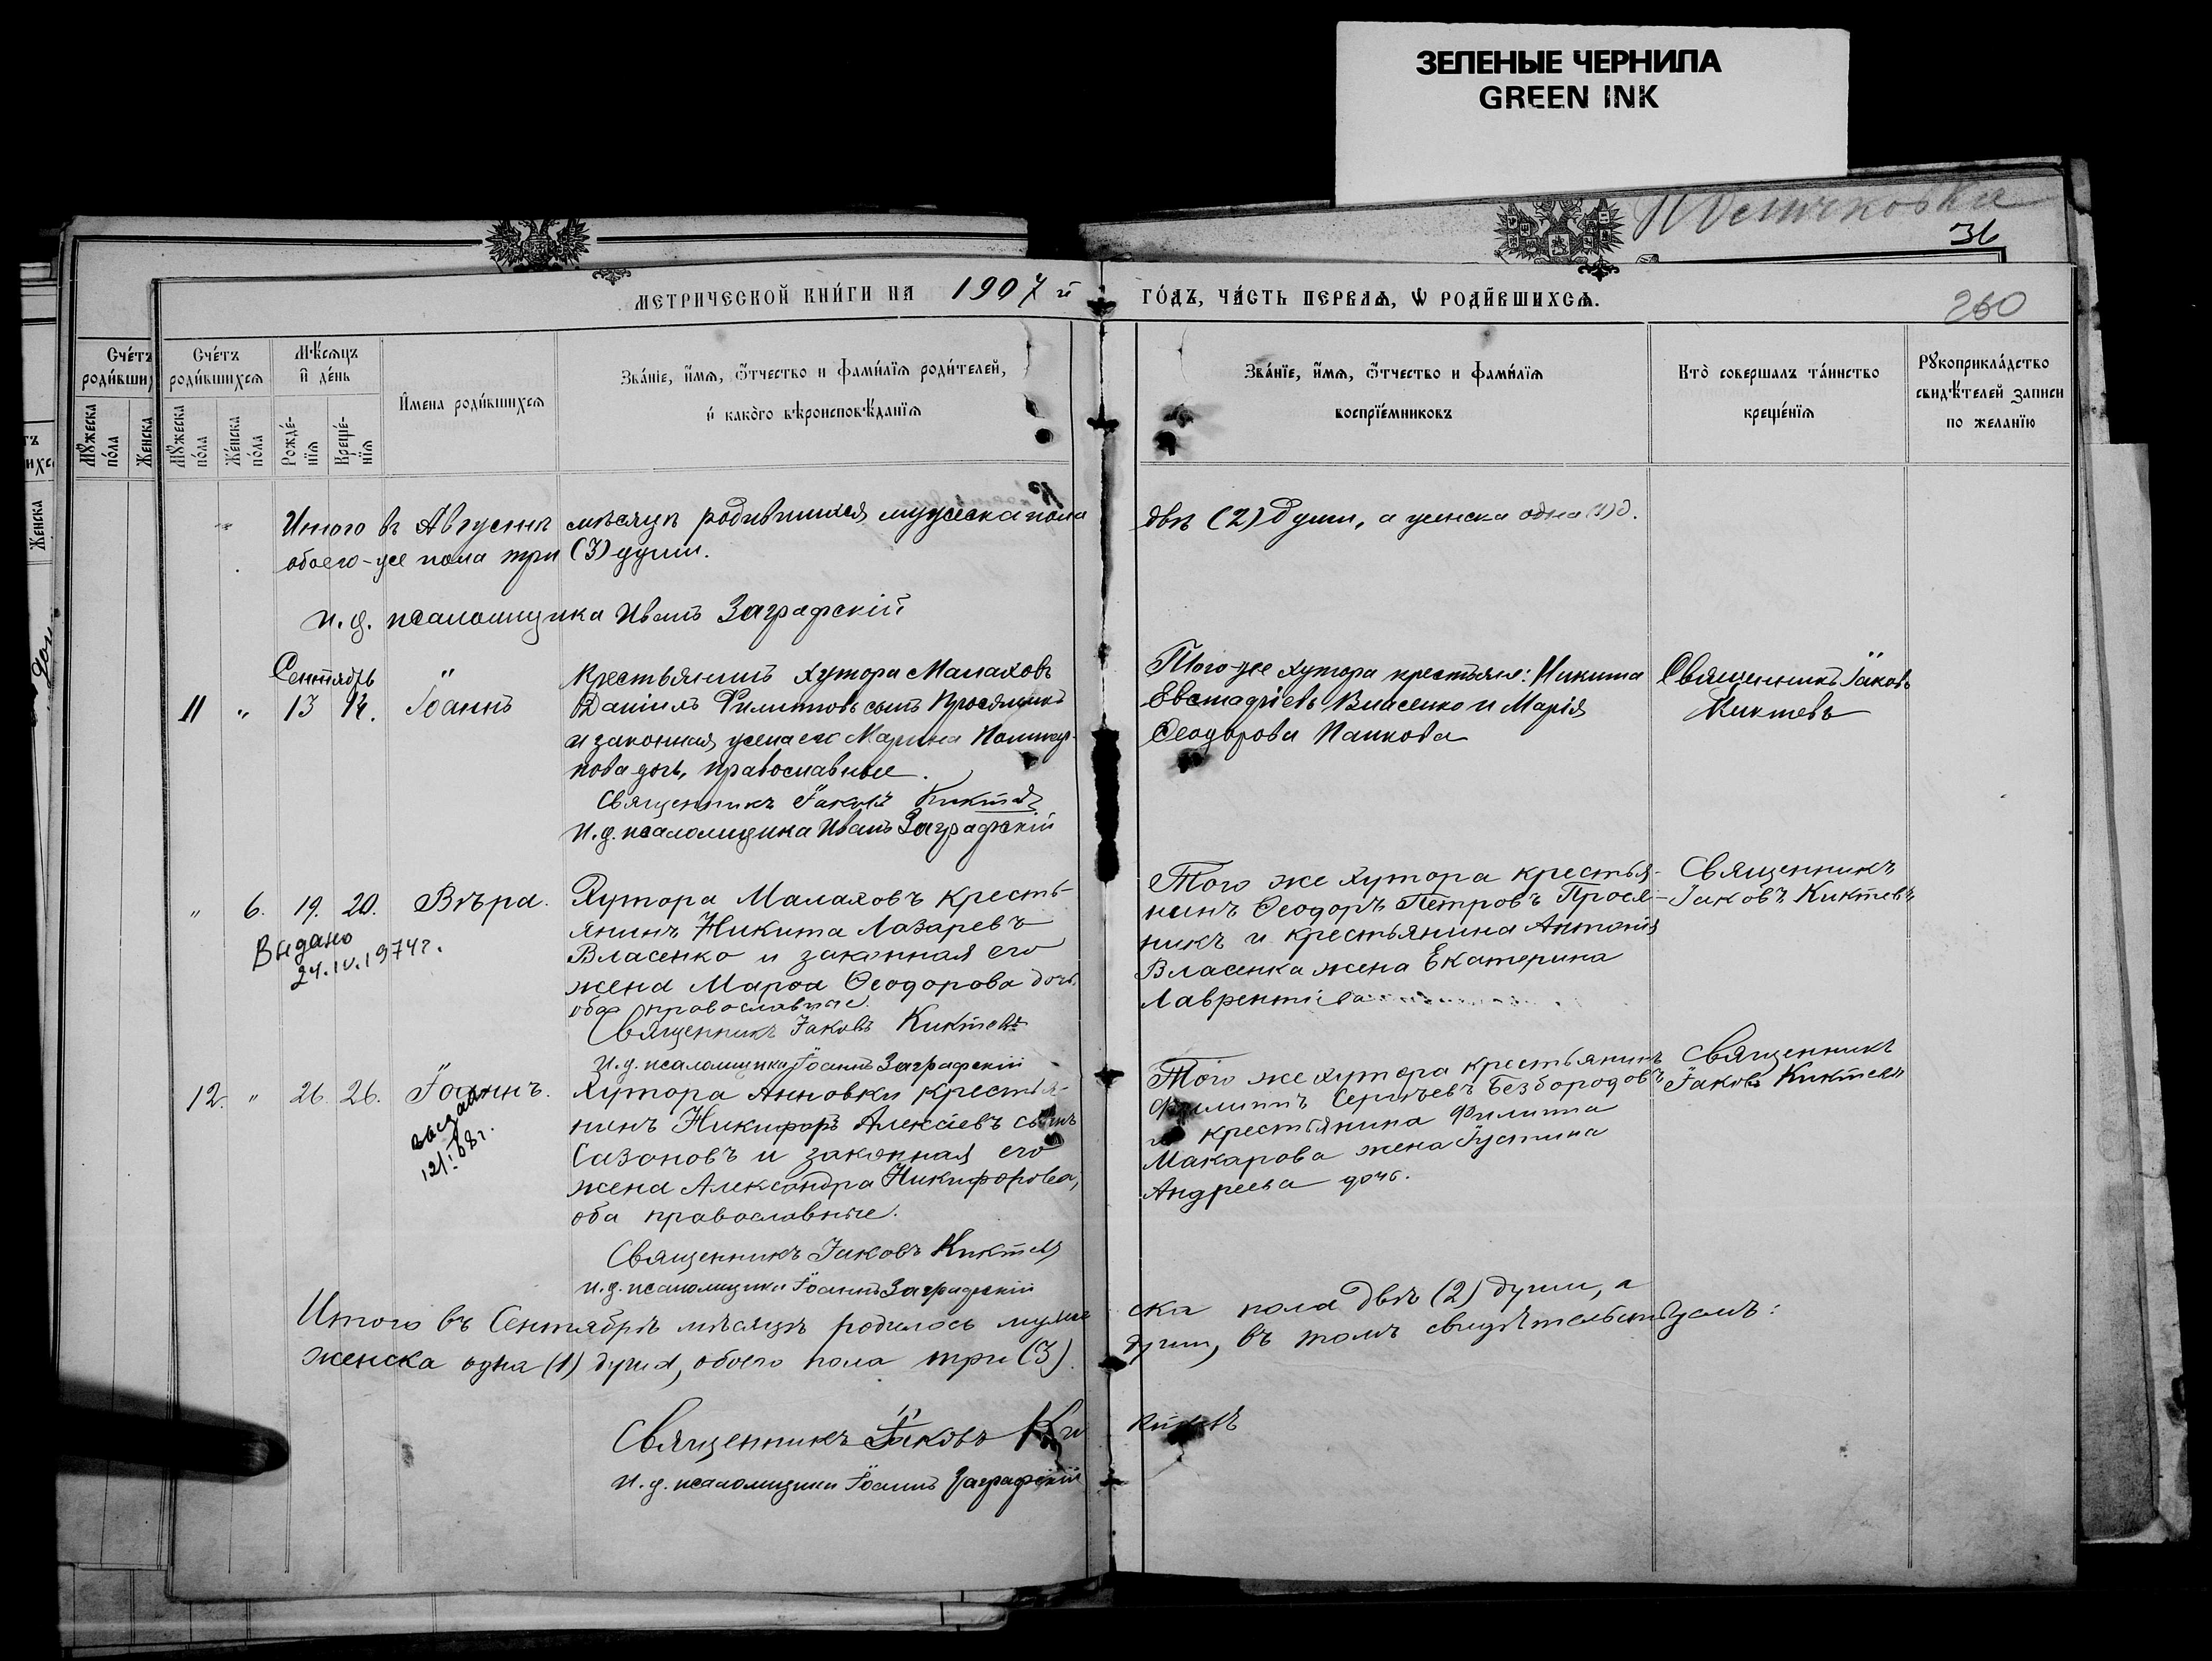 ЗЕЛЕНЫЕ ЧЕРНИЛА
GREEN INK
31
260
МЕТРИЧЕСКОЙ КНИ́ГИ НА 1907 й ГО́ДЪ, ЧА́СТЬ ПЕРВАѦ, Ѡ РОДИ́ВШИХСѦ.
Сче́тъ роди́вшихсѧ
Мѣ́сѧцъ и҆ де́нь
И҆мена роди́вшихсѧ
Зва́нїе, и҆́мѧ, ѻ҆́тчество и фами́лїѧ роди́телей,
и҆ како́гѡ вѣроисповѣ́данїѧ
Зва́нїе, и҆́мѧ, ѻ҆́тчество и фами́лїѧ
воспрїе́мниковъ
Кто̀ совершалъ та́инство
креще́нїѧ
Рꙋкоприкла́дство
свидѣ́телей записи
по желанїю
Мꙋ́жеска по́ла
Же́нска по́ла
Рожде́нїѧ
Креще́нїѧ
Итого въ Августѣ мѣсяцѣ родившихся мужеска пола двѣ (2) души, а женска одна (1) д.
обоего-же пола три (3) души.
и.д. псаломщика Иванъ Заграфскій
Сентябрь
11 " 13 14. Іоаннъ
Крестьянинъ хутора Малаховъ
Даніилъ Филипповъ сынъ Просяникъ
и законная жена его Марина
нова дочь, православные.
Священникъ Іаковъ Киктевъ
И.д. псаломщика Иванъ Заграфскій
Того-же хутора крестьяне: Никита
Евстафіевъ Власенко и Марія
Ѳеодорова Панкова
Священникъ Іаковъ
Киктевъ
" 6. 19. 20. Вѣра.
Выдано
24.IV.1974г.
Хутора Малаховъ кресть-
янинъ Никита Лазаревъ
Власенко и законная его
жена Марѳа Ѳеодорова дочь
оба православные.
Священникъ Іаковъ Киктевъ
И.д. псаломщика Іоаннъ Заграфскій
Того же хутора крестья-
нинъ Ѳеодоръ Петровъ Прося-
никъ и крестьянина Антонія
Власенка жена Екатерина
Лаврентіева
Священникъ
Іаковъ Киктевъ
12. " 26. 26. Іоаннъ.
выдан
12/I.68г.
Хутора Анновки крестья-
нинъ Никифоръ Алексіевъ сынъ
Сазоновъ и законная его
жена Александра Никифорова,
оба православные.
Священникъ Іаковъ Киктевъ
И.д. псаломщика Іоаннъ Заграфскій
Того же хутора крестьянинъ
Филиппъ Сергѣевъ Безбородовъ
и крестьянина Филиппа
Макарова жена Іустина
Андреева дочь.
Священникъ
Іаковъ Киктевъ
Итого въ Сентябрѣ мѣсяцѣ родилось мужеска пола двѣ (2) души, а
женска одна (1) душа, обоего пола три (3) души, въ томъ свидѣтельствуемъ:
Священникъ Іаковъ Киктевъ
И.д. псаломщика Іоаннъ Заграфскій